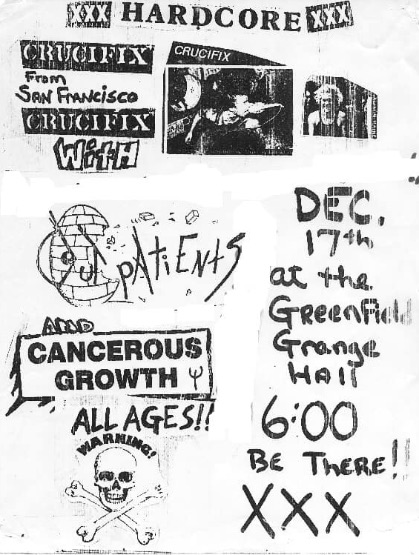 XXX HARDCORE XXX
CRUCIFIX
From
SAN FRANCISCO
CRUCIFIX
WITH
CRUCIFIX
OUTPATIENTS
AND
CANCEROUS
GROWTH
ALL AGES!!
WARNING!
DEC.
17th
at the
GreenField
Grange
HAll
6:00
BE THERE!!
XXX